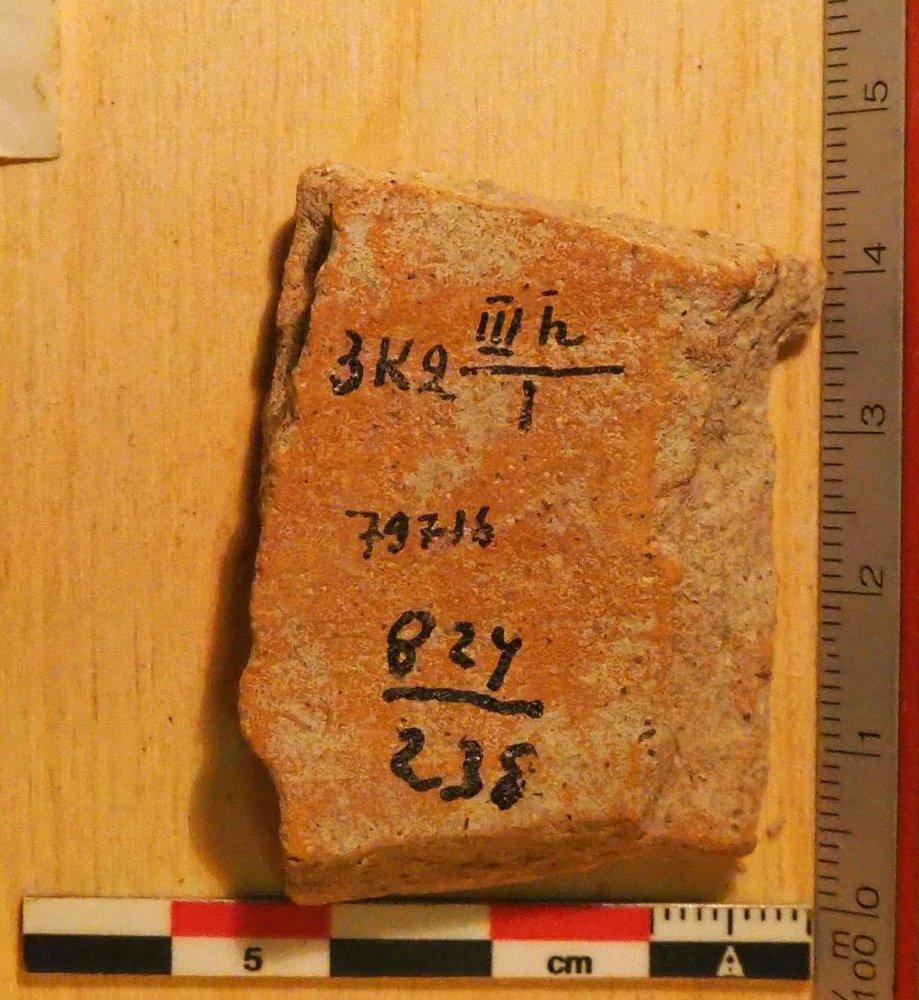 3K2 III h
1
79716
824
238
5 cm
5
4
3
2
1
0
m
100